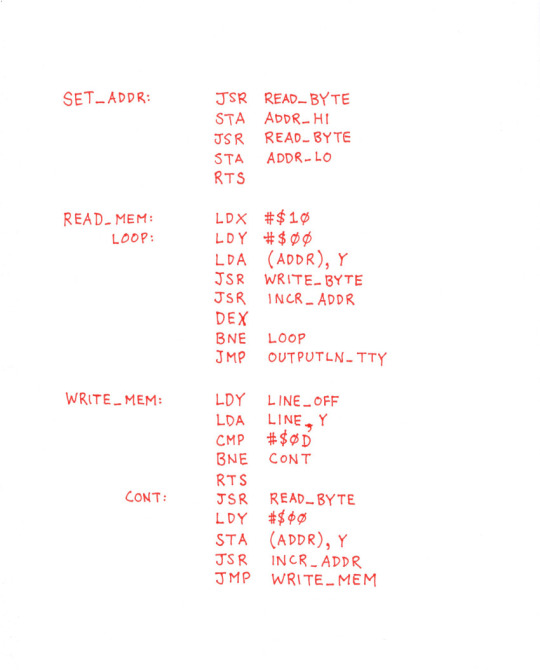 SET_ADDR: JSR READ_BYTE
STA ADDR_HI
JSR READ_BYTE
STA ADDR_LO
RTS
READ_MEM: LDX #$1Ø
LOOP: LDY #$ØØ
LDA (ADDR), Y
JSR WRITE_BYTE
JSR INCR_ADDR
DEX
BNE LOOP
JMP OUTPUTLN_TTY
WRITE_MEM: LDY LINE_OFF
LDA LINE, Y
CMP #$ØD
BNE CONT
RTS
CONT: JSR READ_BYTE
LDY #$ØØ
STA (ADDR), Y
JSR INCR_ADDR
JMP WRITE_MEM